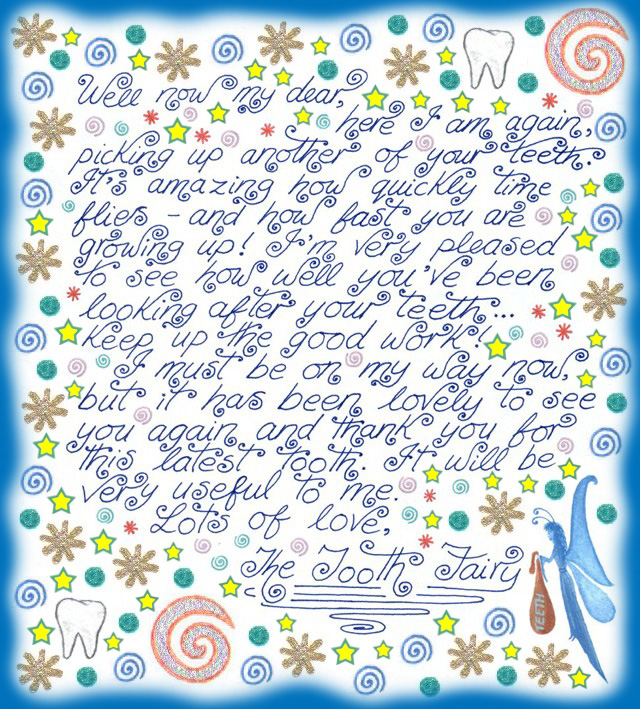 Well now my dear,
here I am again,
picking up another of your teeth.
It's amazing how quickly time
flies - and how fast you are
growing up! I'm very pleased
to see how well you've been
looking after your teeth...
keep up the good work!
I must be on my way now,
but it has been lovely to see
you again and thank you for
this latest tooth. It will be
very useful to me.
Lots of love,
The Tooth Fairy
TEETH